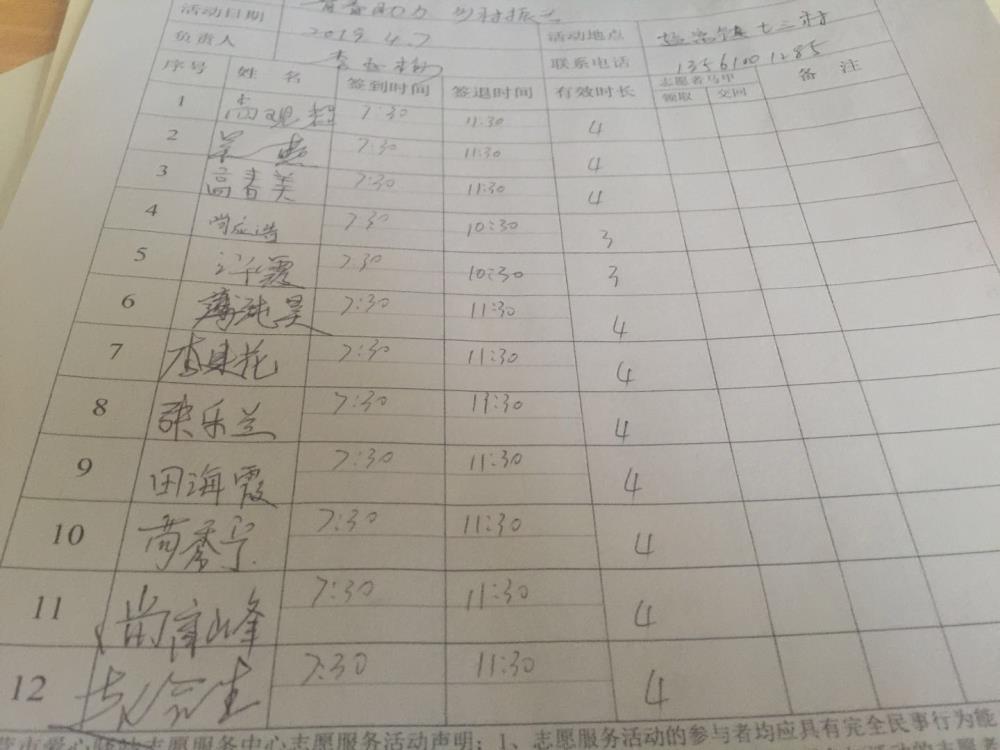 青春助力 乡村振兴
活动日期 2019.4.7 活动地点 七三村
负责人 联系电话 13561001285
序号 姓 名 签到时间 签退时间 有效时长 志愿者马甲 备 注
领取 交回
1 7:30 11:30 4
2 7:30 11:30 4
3 高春美 7:30 11:30 4
4 尚应浩 7:30 10:30 3
5 许霞 7:30 10:30 3
6 7:30 11:30 4
7 7:30 11:30 4
8 张乐兰 7:30 11:30 4
9 田海霞 7:30 11:30 4
10 7:30 11:30 4
11 尚高峰 7:30 11:30 4
12 7:30 11:30 4
市爱心驿站志愿服务中心志愿服务活动声明：1、志愿服务活动的参与者均应具有完全民事行为能